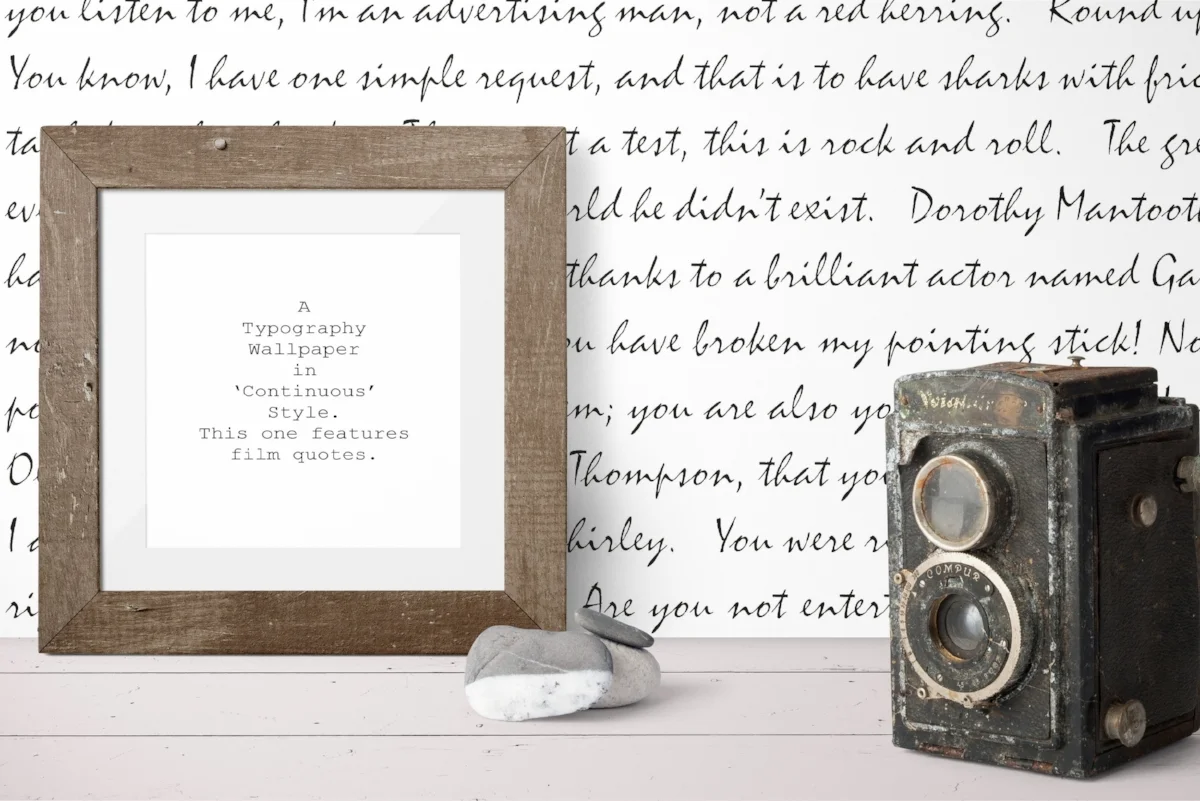 you listen to me, I'm an advertising man, not a red herring. Round up
You know, I have one simple request, and that is to have sharks with fric
ta t a test, this is rock and roll. The gre
ev rld he didn't exist. Dorothy Mantooth
ha thanks to a brilliant actor named Ga
no u have broken my pointing stick! No
po m; you are also yo
O Thompson, that you
I a hirley. You were r
ri Are you not entert
A
Typography
Wallpaper
in
‘Continuous’
Style.
This one features
film quotes.
COMPUR